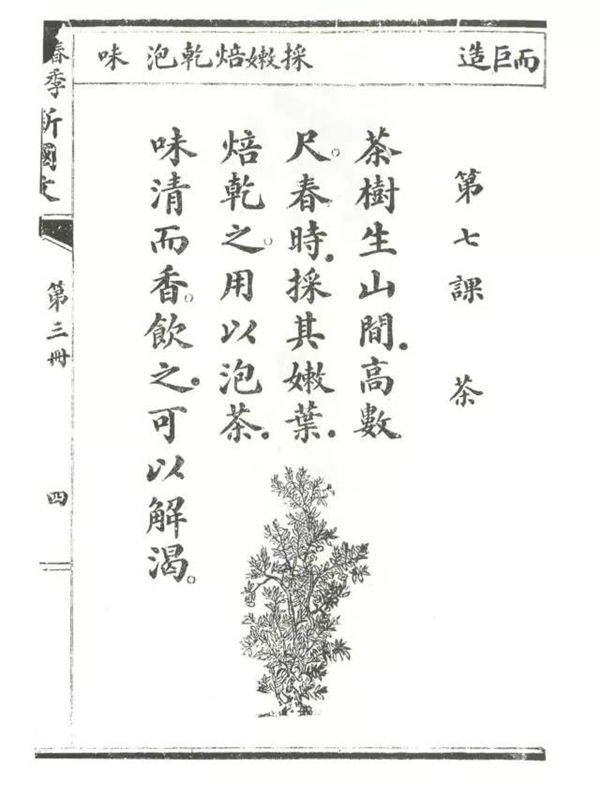 而巨造
採嫩焙乾泡味
第七課 茶
茶樹生山間。高數
尺。春時。採其嫩葉。
焙乾之。用以泡茶。
味清而香。飲之。可以解渴。
春季新國文
第三冊
四